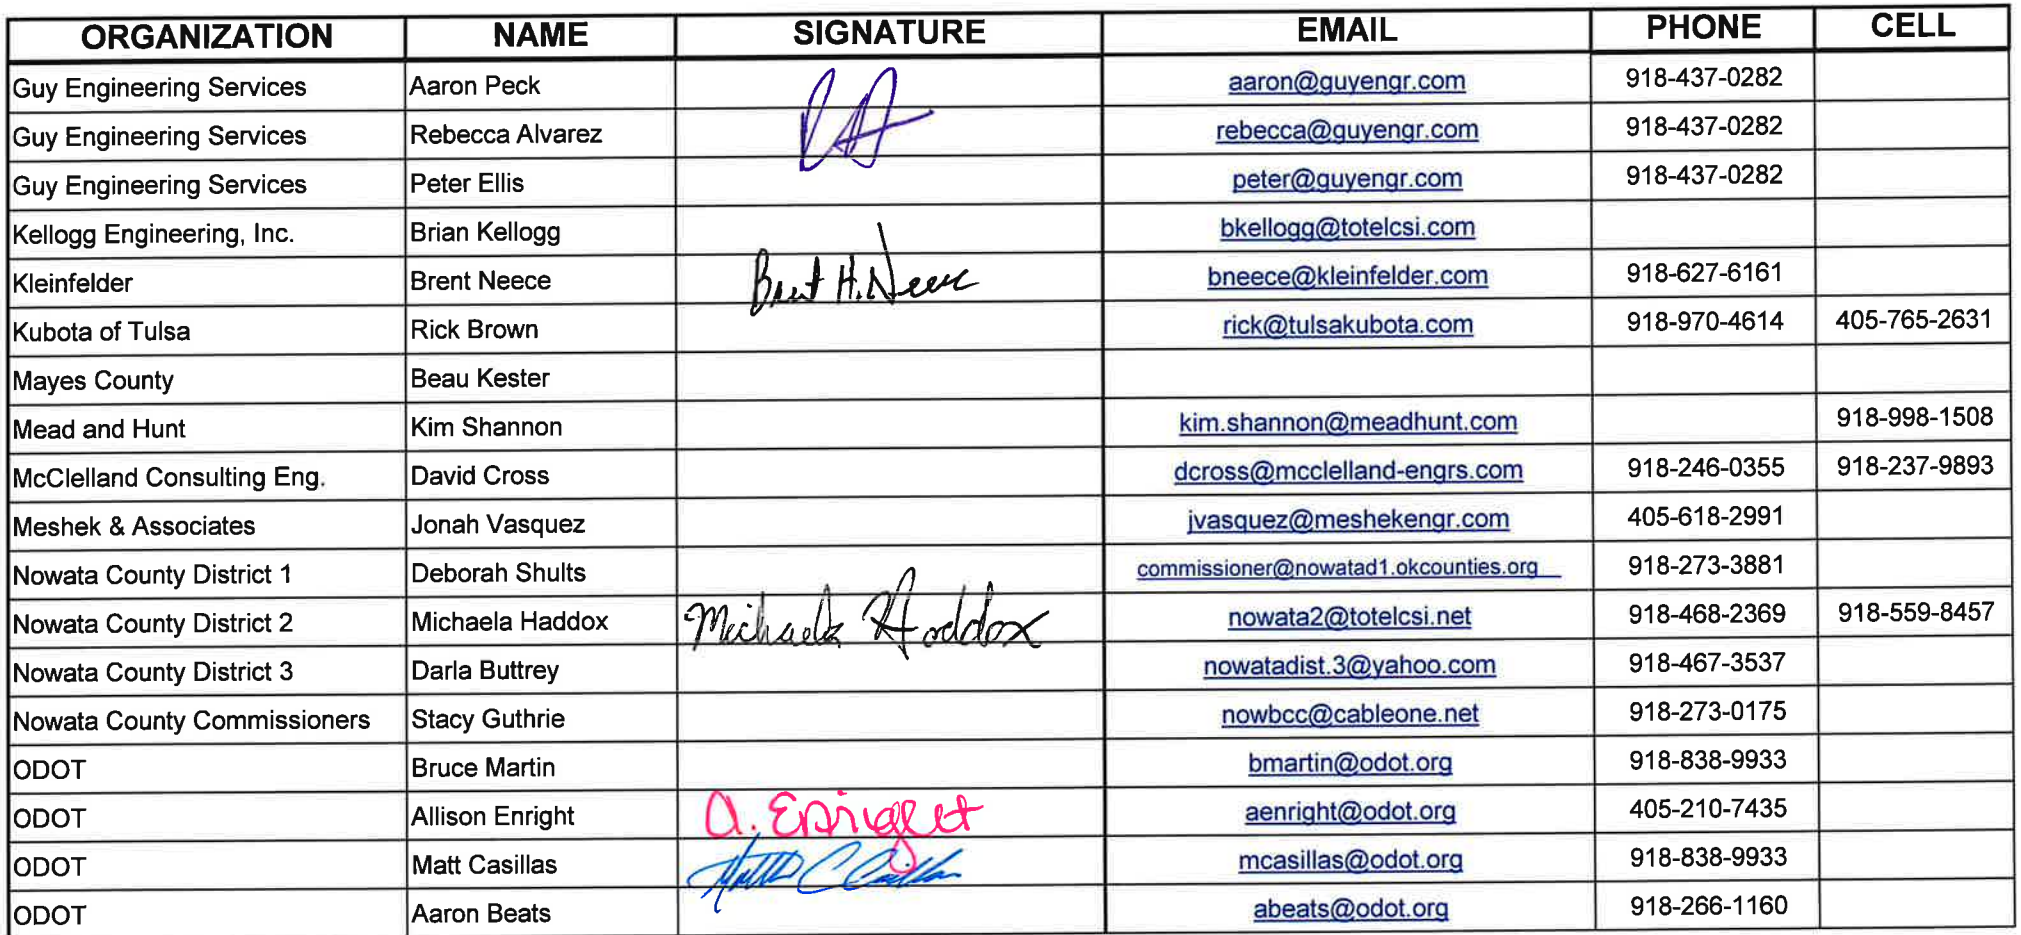 ORGANIZATION NAME SIGNATURE EMAIL PHONE CELL
Guy Engineering Services Aaron Peck aaron@guyengr.com 918-437-0282
Guy Engineering Services Rebecca Alvarez rebecca@guyengr.com 918-437-0282
Guy Engineering Services Peter Ellis peter@guyengr.com 918-437-0282
Kellogg Engineering, Inc. Brian Kellogg bkellogg@totelcsi.com
Kleinfelder Brent Neece Brent H. Neece bneece@kleinfelder.com 918-627-6161
Kubota of Tulsa Rick Brown rick@tulsakubota.com 918-970-4614 405-765-2631
Mayes County Beau Kester
Mead and Hunt Kim Shannon kim.shannon@meadhunt.com 918-998-1508
McClelland Consulting Eng. David Cross dcross@mcclelland-engrs.com 918-246-0355 918-237-9893
Meshek & Associates Jonah Vasquez jvasquez@meshekengr.com 405-618-2991
Nowata County District 1 Deborah Shults commissioner@nowatad1.okcounties.org 918-273-3881
Nowata County District 2 Michaela Haddox Michaela Haddox nowata2@totelcsi.net 918-468-2369 918-559-8457
Nowata County District 3 Darla Buttrey nowatadist.3@yahoo.com 918-467-3537
Nowata County Commissioners Stacy Guthrie nowbcc@cableone.net 918-273-0175
ODOT Bruce Martin bmartin@odot.org 918-838-9933
ODOT Allison Enright A. Enright aenright@odot.org 405-210-7435
ODOT Matt Casillas Matthew C Casillas mcasillas@odot.org 918-838-9933
ODOT Aaron Beats abeats@odot.org 918-266-1160